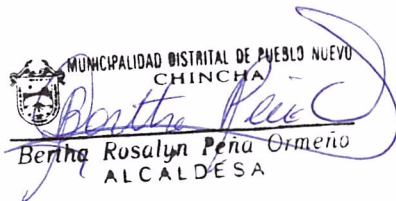 MUNICIPALIDAD DISTRITAL DE PUEBLO NUEVO
CHINCHA
Bertha Peña O
Bertha Rosalyn Peña Ormeño
ALCALDESA